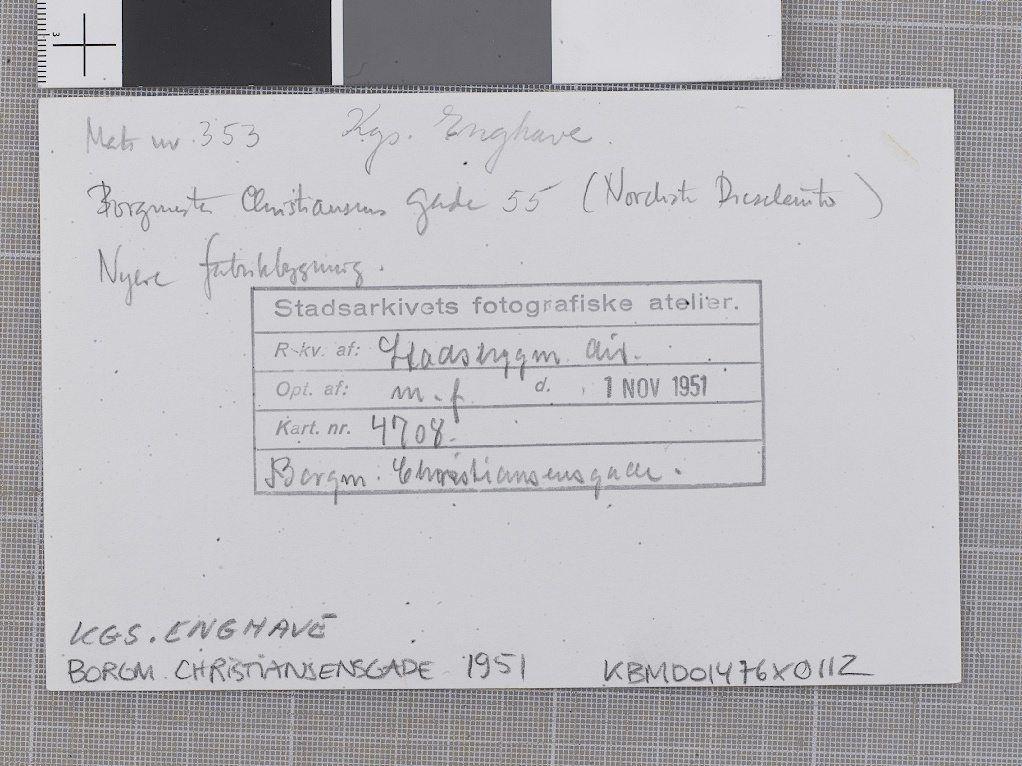 Matr nr. 353 Kgs. Enghave.
Borgmester Christiansens gade 55 (Nordisk Dieselauto)
Nyere fabrikbygning.
Stadsarkivets fotografiske atelier.
Rekv. af: Stadsbygm. dir.
Opt. af: m.f. d. 1 NOV 1951
Kart. nr. 4708.
Borgm. Christiansensgade.
KGS. ENGHAVE
BORGM. CHRISTIANSENSGADE 1951 KBMD01476X0112